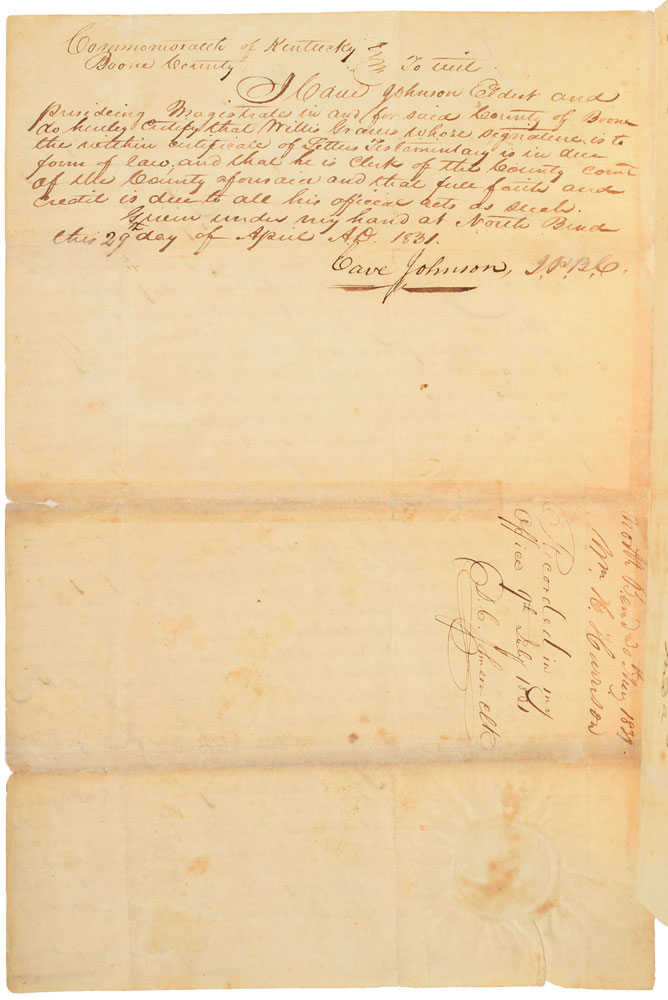 Commonwealth of Kentucky
Boone County To wit.
I Cave Johnson Eldest and
presideing Magistrate in and for said County of Boone
do hereby Certify that Willis Graves whose segnature is to
the within certificate of Letters Testamentary is in due
form of law, and that he is Clerk of the County court
of the County aforesaid and that full faith and
credit is due to all his official acts as such.
Given under my hand at North Bend
this 29th day of April AD. 1831.
Cave Johnson, J.P.B.C.
North Bend 30th May 1831.
Wm. H. Harrison
Recorded in my
office 9th July 1831
Johnson Clk